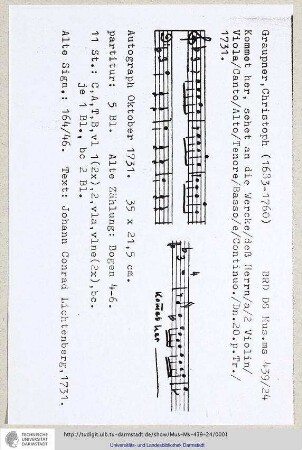 Graupner,Christoph (1683-1760) BRD DS Mus.ms 439/24
Kommet her, sehet an die Wercke/deß Herrn/a/2 Violin/
Viola/Canto/Alto/Tenore/Basso/e/Continuo./Dn.20.p.Tr./
1731.
Kom̅et her
Autograph Oktober 1731. 35 x 21,5 cm.
partitur: 5 Bl. Alte Zählung: Bogen 4-6.
11 St.: C,A,T,B,vl 1(2x),2,vla,vlne(2x),bc.
je 1 Bl., bc 2 Bl.
Alte Sign.: 164/46. Text: Johann Conrad Lichtenberg,1731.
TECHNISCHE
UNIVERSITÄT
DARMSTADT
http://tudigit.ulb.tu-darmstadt.de/show/Mus-Ms-439-24/0001
Universitäts- und Landesbibliothek Darmstadt